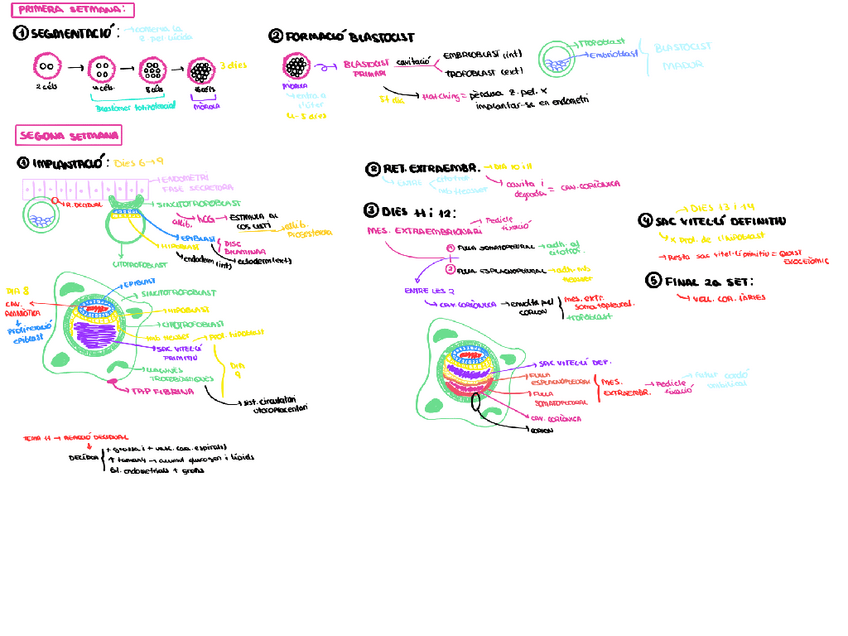 PRIMERA SETMANA:
① SEGMENTACIÓ:
conserva la
z. pel·lúcida
3 dies
2 cèls
4 cèls
8 cèls
Blastòmer totipotencial
MÒRULA
② FORMACIÓ BLASTOCIST
MÒRULA
4-5 dies
BLASTOCIST
PRIMARI
cavitació
EMBRIOBLAST (int)
TROFOBLAST (ext)
5è dia
Hatching = pèrdua z. pel. x
implantar-se en endometri
TROFOBLAST
EMBRIOBLAST
BLASTOCIST
MADUR
SEGONA SETMANA
① IMPLANTACIÓ: Dies 6→9
ENDOMETRI
FASE SECRETORA
R. DECIDUAL
SINCITIOTROFOBLAST
hCG → ESTIMULA AL
COS LUTI
EPIBLAST
HIPOBLAST
DISC
BILAMINAR
endoderm (int)
ectoderm (ext)
CITOTROFOBLAST
DIA 8
CAV.
AMNIÒTICA
PROLIFERACIÓ
epiblast
EPIBLAST
SINCITIOTROFOBLAST
HIPOBLAST
CITOTROFOBLAST
SAC VITEL·LÍ
PRIMITIU
LLACUNES
TROFOBLÀSTIQUES
DIA
9
TAP FIBRINA
sist. circulatori
uteroplacentari
TEMA 11 → REACCIÓ DECIDUAL
DECÍDUA
+ grossa i + vasc. (aa. espirals)
↑ tamany → acumul glucogen i lípids
Gl. endometrials + grans
② RET. EXTRAEMBR. → DIA 10 i 11
cavita i
degrada = CAV. CORIÒNICA
③ DIES 11 i 12:
MES. EXTRAEMBRIONARI
Pedicle
fixació
① FULLA SOMATOPLEURAL → adh. al
citotrof.
② FULLA ESPLACNOPLEURAL
ENTRE LES 2
CAV. CORIÒNICA → envolta pel
CORION
mes. extr.
somatopleural
+ TROFOBLAST
SAC VITEL·LÍ DEF.
FULLA
ESPLACNOPLEURAL
FULLA
SOMATOPLEURAL
MES.
EXTRAEMBR.
Pedicle
fixació
CAV. CORIÒNICA
CORION
→ DIES 13 i 14
④ SAC VITEL·LÍ DEFINITIU
x Prol. de l'hipoblast
Resta sac vitel·lí primitiu = Quist
exocelòmic
⑤ FINAL 2a SET: